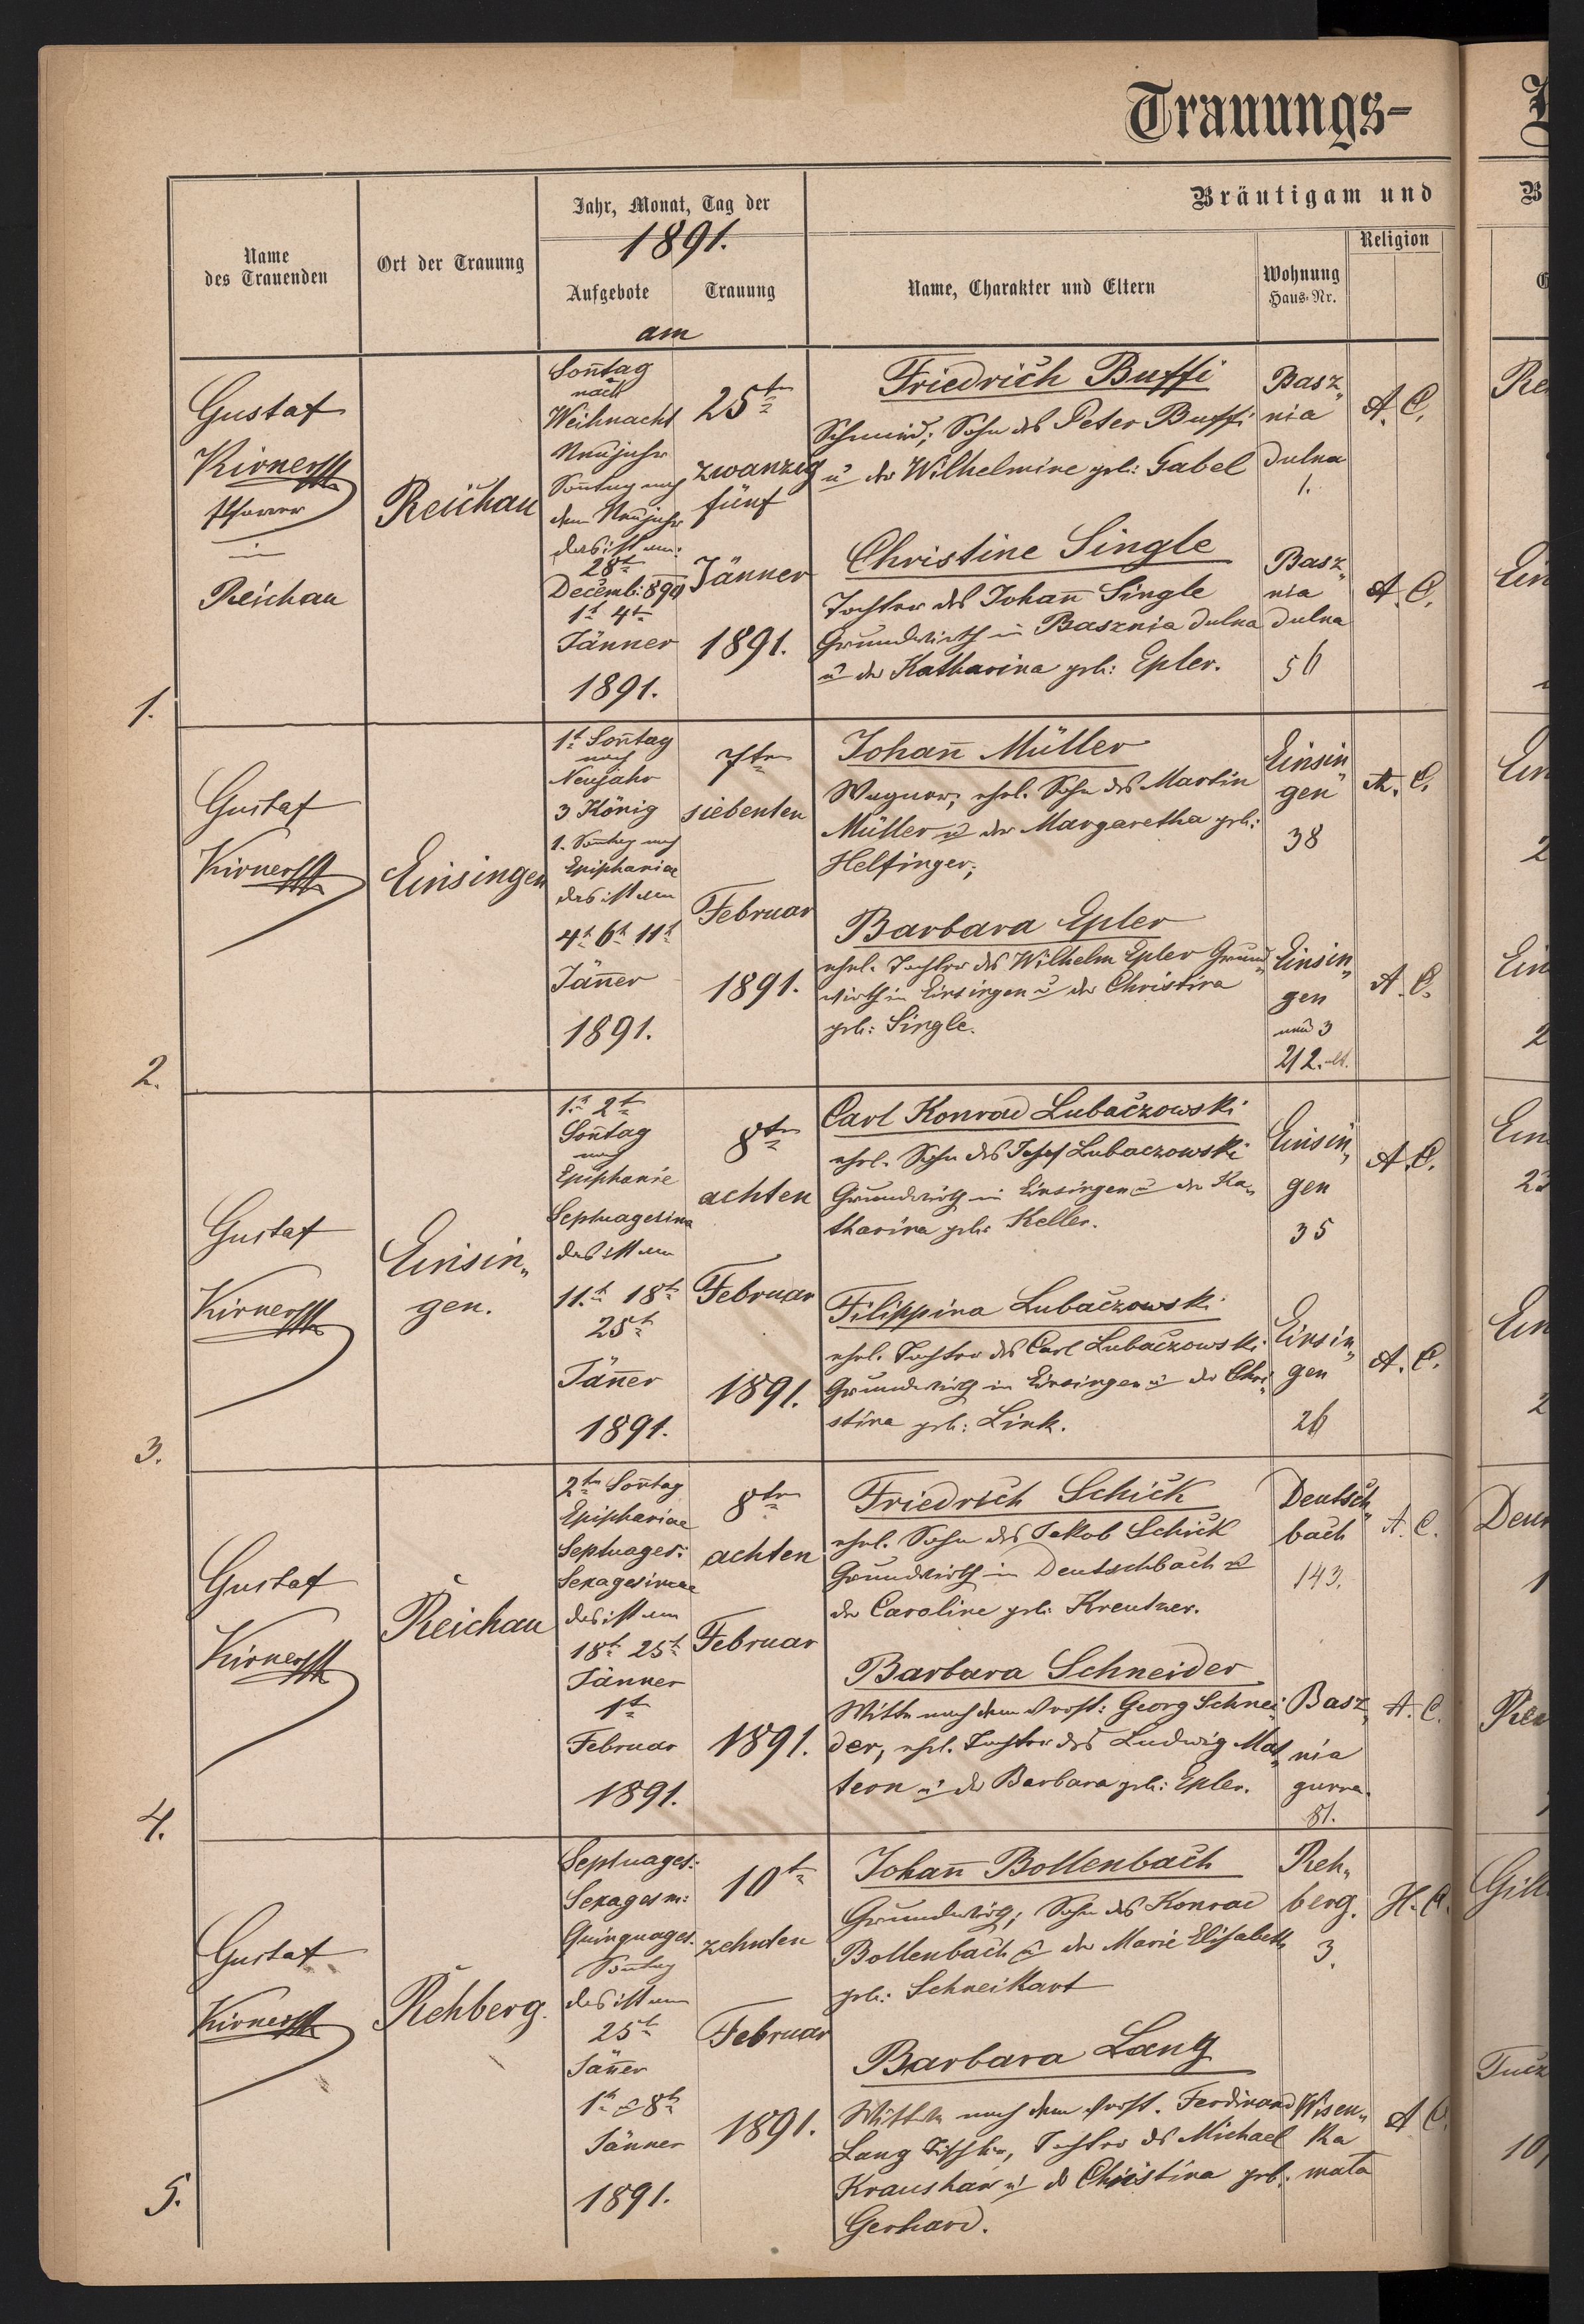 Trauungs-
Bräutigam und
Jahr, Monat, Tag der
1891.
Name
des Trauenden
Ort der Trauung
Aufgebote
Trauung
am
Name, Charakter und Eltern
Wohnung
Haus-Nr.
Religion
1.
Gustaf
Kirner
Pfarrer
in
Reichau
Reichau
Son̄tag
nach
Weihnacht
Neujahr
Sonntag nach
dem Neujahr
das ist am:
28t
Decemb: 890
1t 4t
Jänner
1891.
25t
zwanzig
fünf
Jänner
1891.
Friedrich Buffi
Schmied; Sohn des Peter Buffi
u der Wilhelmine geb: Gabel
Basz„
nia
dulna
1.
A. C.
Christine Single
Tochter des Johan̄ Single
Grundwirth in Basznia dulna
u der Katharina geb: Epler.
Basz„
nia
dulna
56
A. C.
2.
Gustaf
Kirner
Einsingen
1t Son̄tag
nach
Neujahr
3 König
1. Sonntag nach
Epiphaniae
das ist am
4t 6t 11t
Jän̄er
1891.
7ten
siebenten
Februar
1891.
Johan̄ Müller
Wagner, ehel. Sohn des Martin
Müller u der Margaretha geb:
Helfinger;
Einsin„
gen
38
A. C.
Barbara Epler
ehel. Tochter des Wilhelm Epler Grund„
wirth in Einsingen u der Christina
geb: Single.
Einsin„
gen
neu 3
212. alt.
A. C.
3.
Gustaf
Kirner
Einsin„
gen.
1.t 2t
Son̄tag
nach
Epiphanie
Septuagesima
das ist am
11.t 18t
25t
Jän̄er
1891.
8ten
achten
Februar
1891.
Carl Konrad Lubaczowski
ehel. Sohn des Josef Lubaczowski
Grundwirth in Einsingen u der Ka„
tharina geb: Keller.
Einsin„
gen
35
A. C.
Filippina Lubaczowski
ehel. Tochter des Carl Lubaczowski
Grundwirth in Einsingen u der Chri„
stina geb: Link.
Einsin„
gen
26
A. C.
4.
Gustaf
Kirner
Reichau
2te Son̄tag
Epiphaniae
Septuages:
Sexagesimae
das ist am
18t 25t
Jänner
1t
Februar
1891.
8ten
achten
Februar
1891.
Friedrich Schick
ehel. Sohn des Jakob Schick
Grundwirth in Deutschbach u
der Caroline geb: Kreutner.
Deutsch„
bach
143.
A. C.
Barbara Schneider
Witte nach dem verst: Georg Schnei„
der, ehel. Tochter des Ludwig Mat„
tern u der Barbara geb: Epler.
Basz„
nia
gurna.
81.
A. C.
5.
Gustaf
Kirner
Rehberg.
Septuages:
Sexagesm:
Quinquages.
Sonntag
das ist am
25t
Jän̄er
1t u 8t
Jänner
1891.
10t
zehnten
Februar
1891.
Johan̄ Bollenbach
Grundwirth; Sohn des Konrad
Bollenbach u der Marie Elisabeth
geb: Schneikart
Reh„
berg.
3.
H. C.
Barbara Lang
Wittwe nach dem verst. Ferdinand
Lang Tischler, Tochter des Michael
Kraushar u d Christina geb:
Gerhard.
Wisen„
ka
mała
A C.